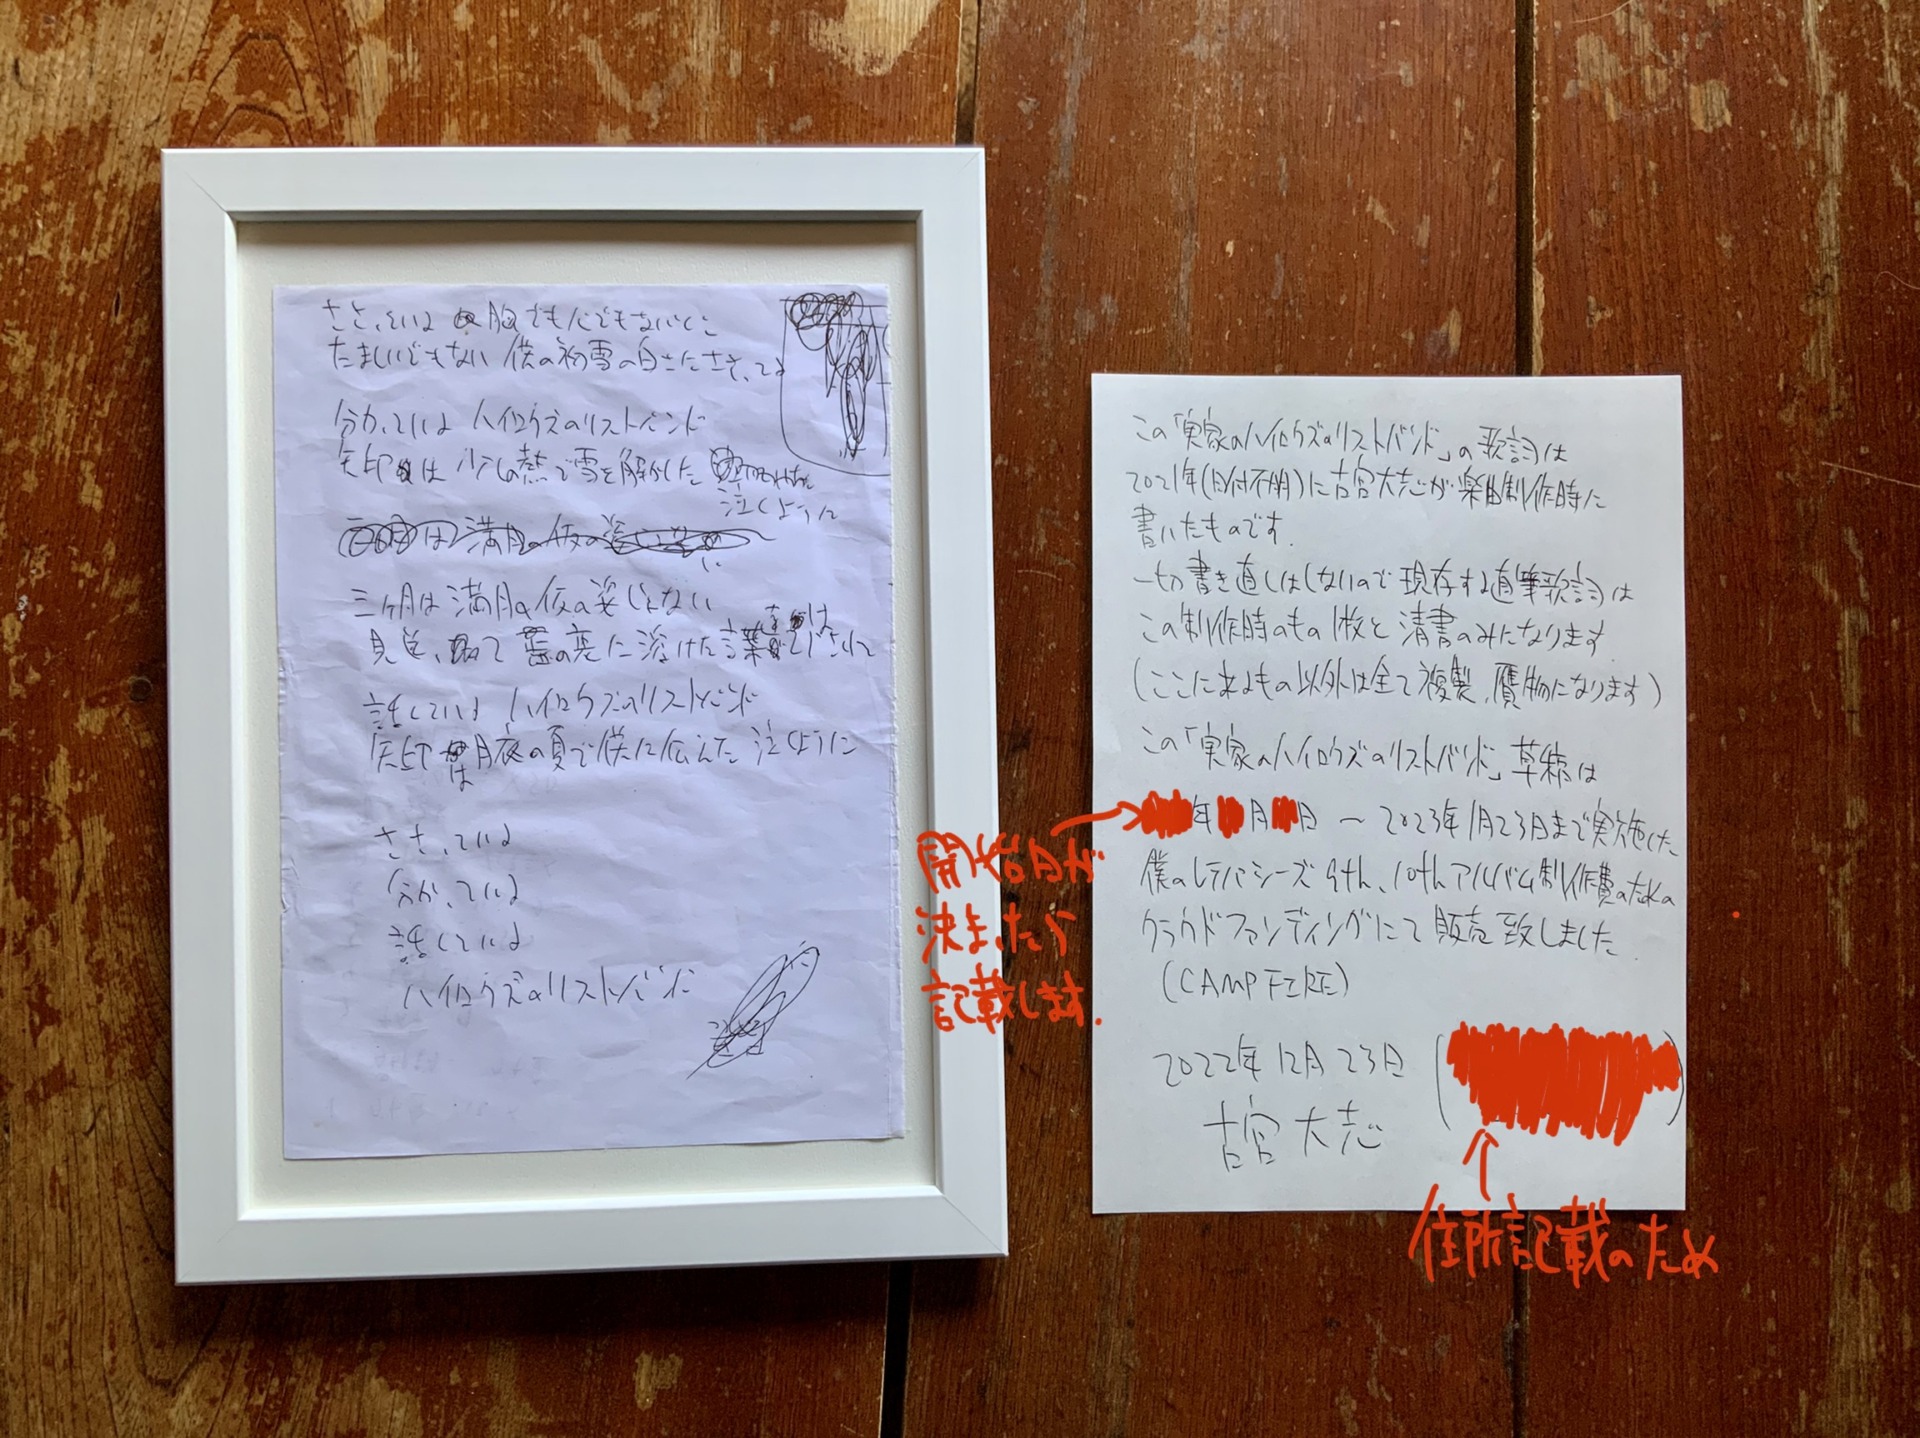 ささっている 胸でも心でもないとこ
たましいでもない 僕の初雪の白さにささってる
分かっている ハイロウズのリストバンド
矢印は 少しの熱で雪を解かした
泣くように
は満月の仮の姿
三ヶ月は満月の仮の姿じゃない
見失って 夏に溶けた言葉
話している ハイロウズのリストバンド
矢印は月夜の夏で僕に伝えた 泣くように
ささっている
分かっている
話している
ハイロウズのリストバンド
この「実家のハイロウズのリストバンド」の歌詞は
2021年(日付不明)に古宮大志が楽曲制作時に
書いたものです.
一切書き直しはしないので現存する直筆歌詞は
この制作時のもの1枚と清書のみになります
(ここにあるもの以外は全て複製、贋物になります)
この「実家のハイロウズのリストバンド」草稿は
年 月 日 〜 2023年1月23日まで実施した
僕のレテパシーズ 9th、10thアルバム制作費のための
クラウドファンディングにて販売致しました
(CAMPFIRE)
2022年12月23日
古宮大志
開始日が
決まったら
記載します.
住所記載のため